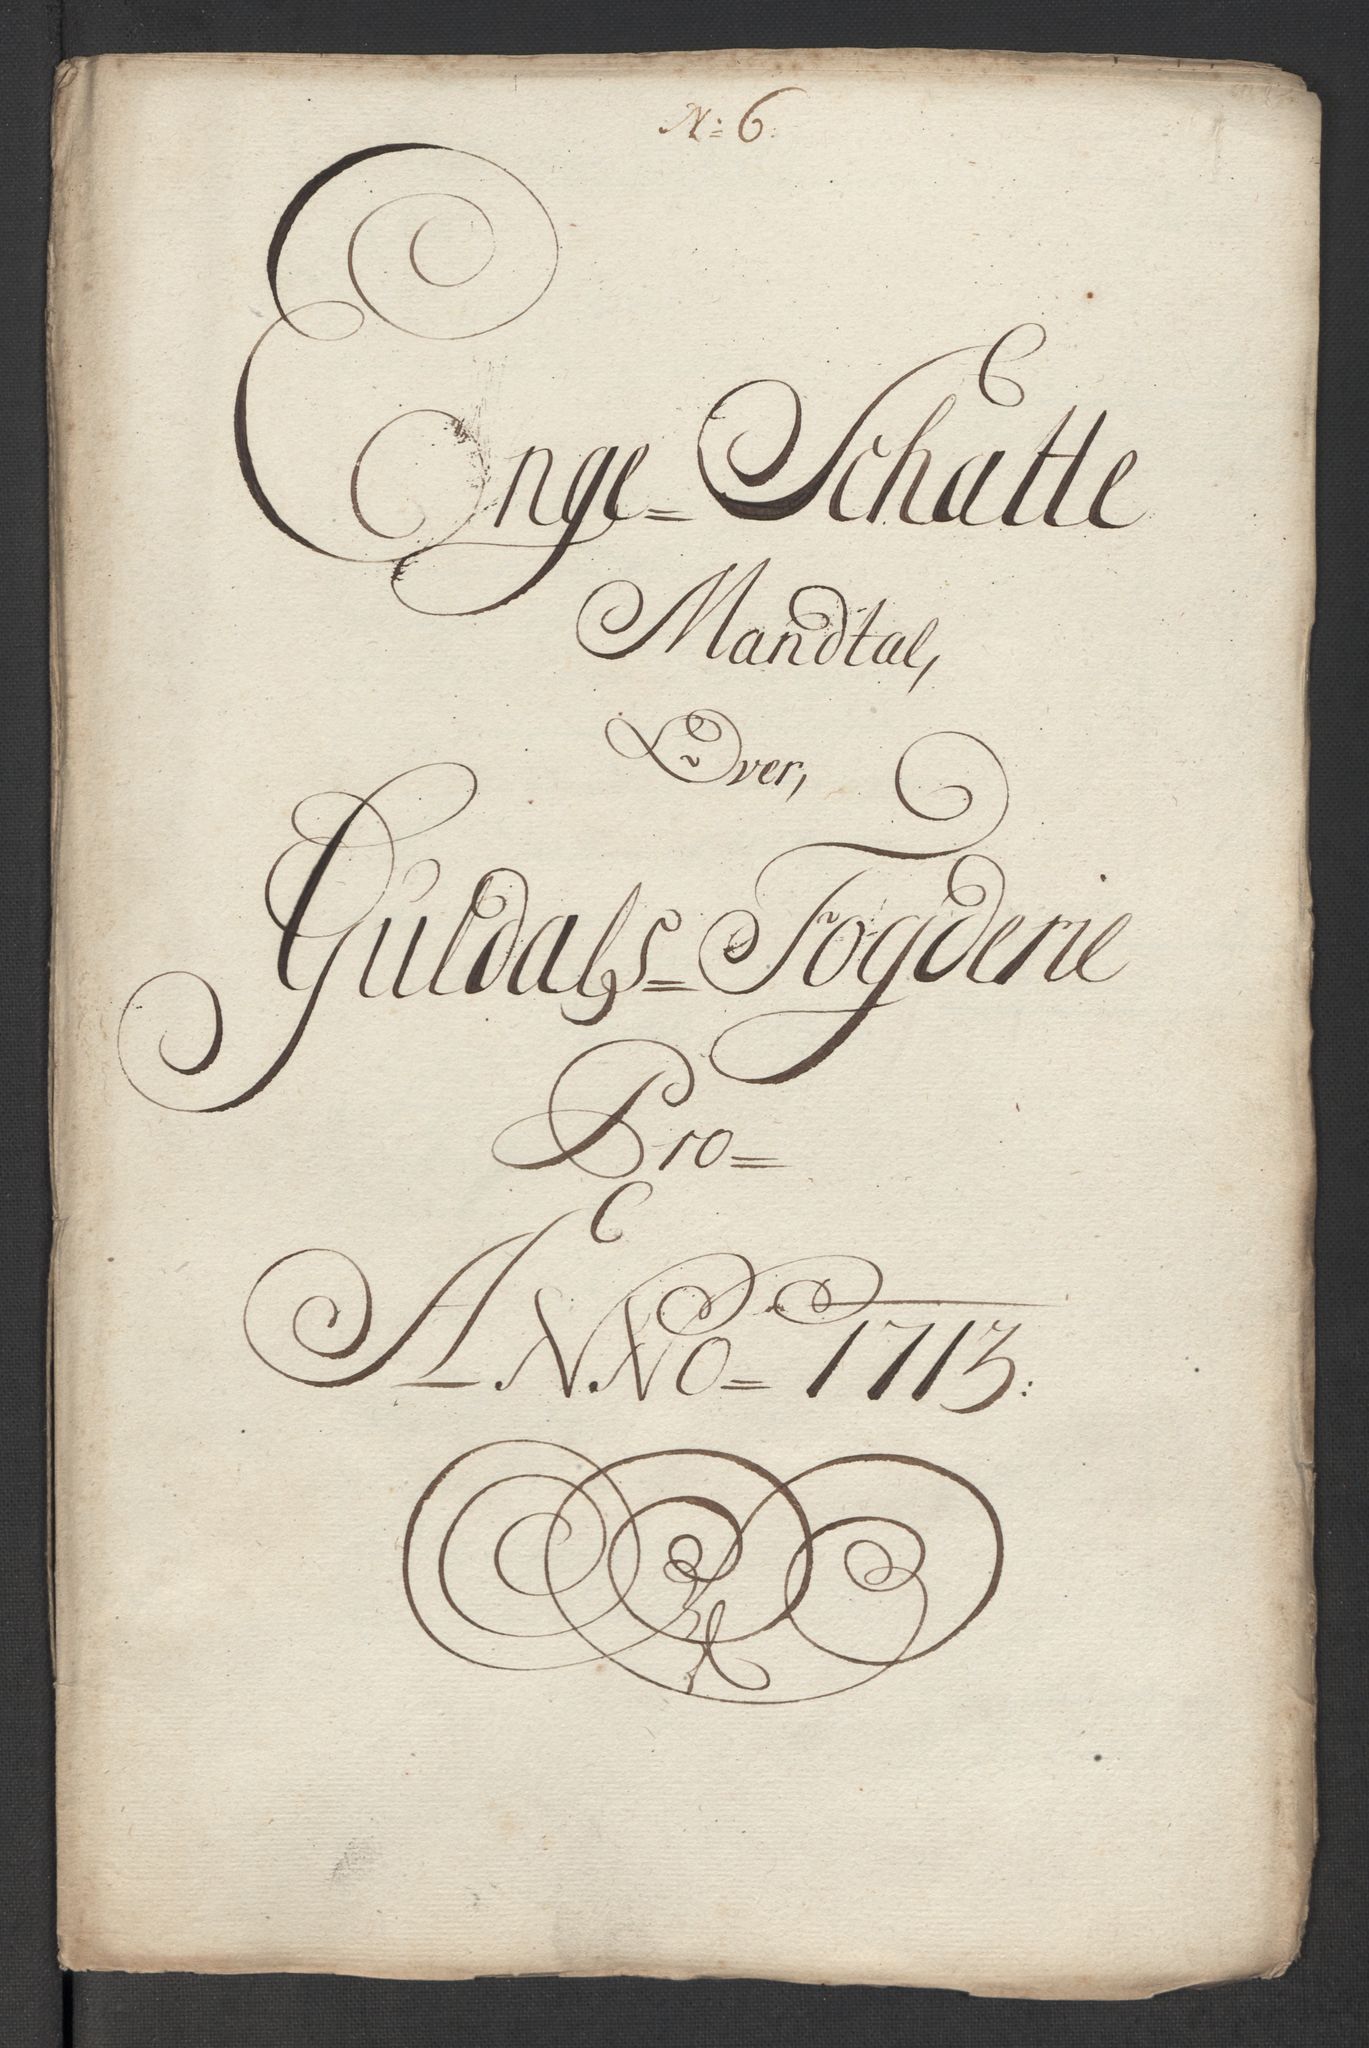 N: 6:
Enge=Schatte
Mandtal,
Over,
Guldals=Fogderie
Pro=
ANNO=1713: